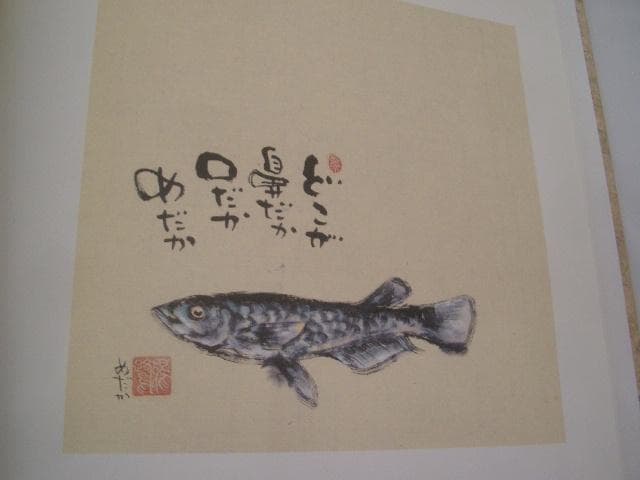 どこが
鼻だか
口だか
めだか
めだか